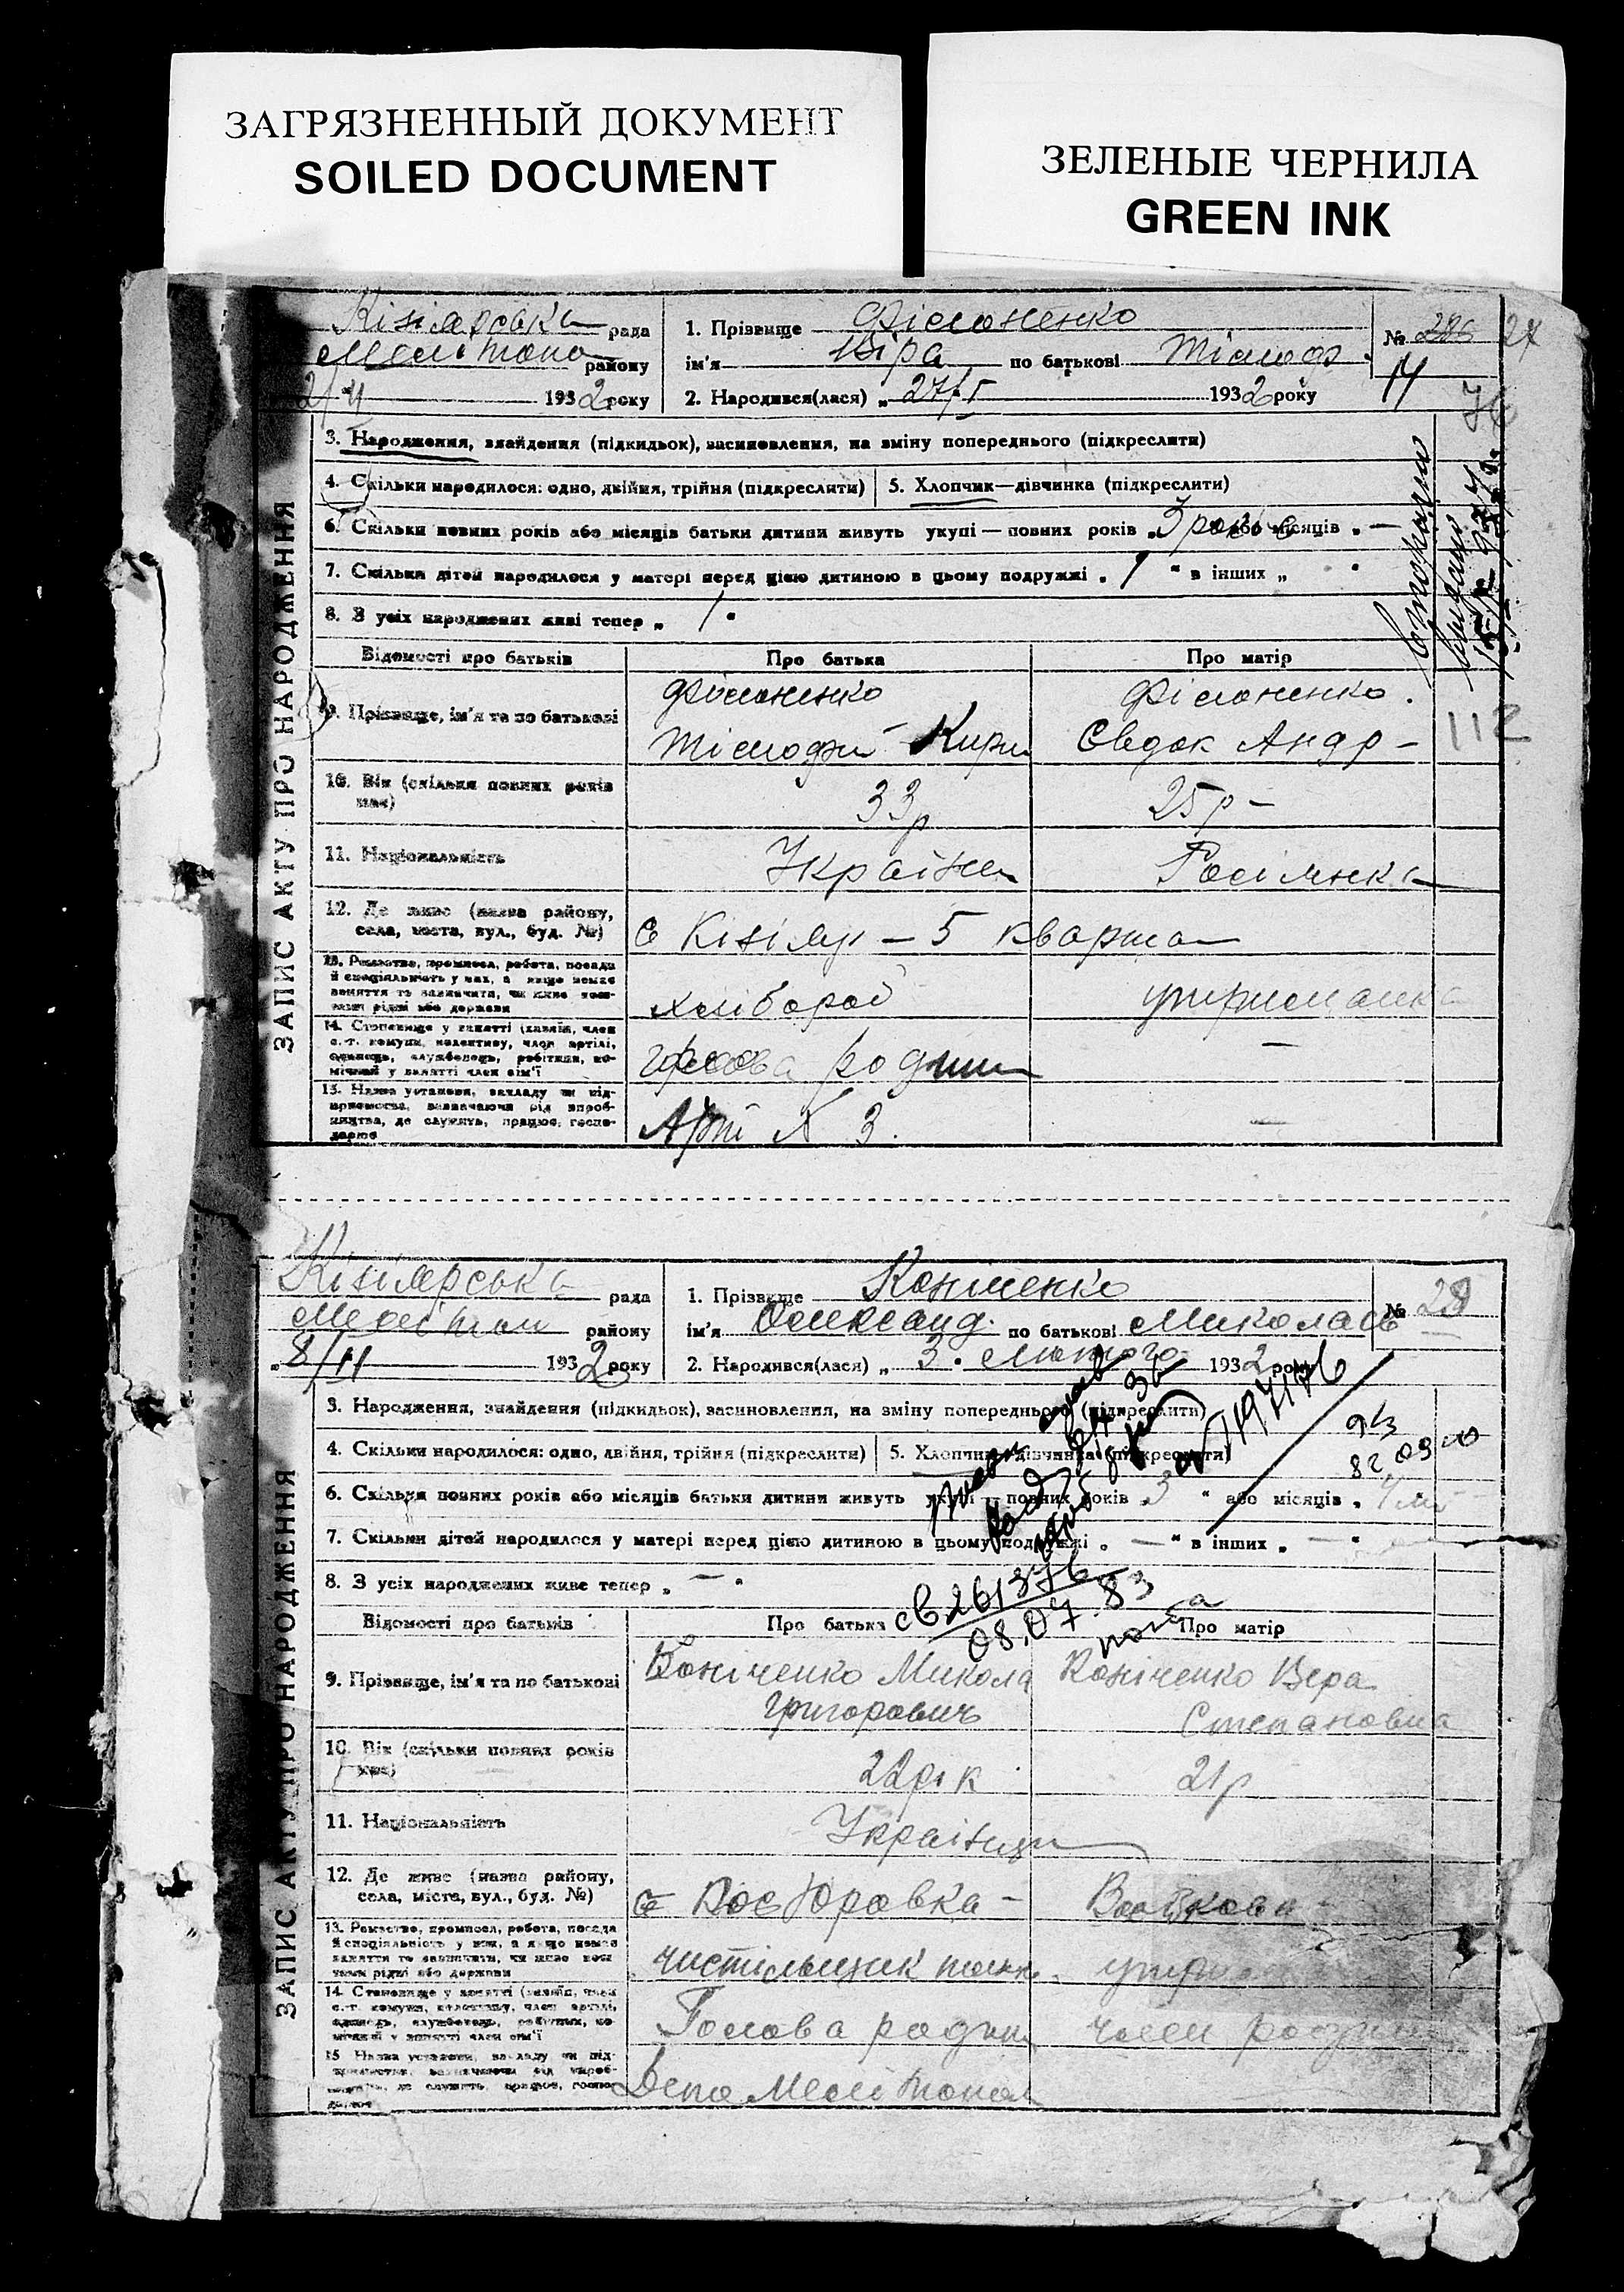 ЗАГРЯЗНЕННЫЙ ДОКУМЕНТ
SOILED DOCUMENT
ЗЕЛЕНЫЕ ЧЕРНИЛА
GREEN INK
ЗАПИС АКТУ ПРО НАРОДЖЕННЯ
Кізіярська рада
району
2/II 1932 року
1. Прізвище Філоненко
ім'я Віра по батькові Тімоф.
2. Народився(лася) „ 27/I 1932 року
№ 286 27
14
3. Народження, знайдення (підкидьок), засиновлення, на зміну попереднього (підкреслити)
4. Скільки народилося: одно, двійня, трійня (підкреслити)
5. Хлопчик—дівчинка (підкреслити)
6. Скільки повних років або місяців батьки дитини живуть укупі — повних років „ 3 роки або місяців „ —
7. Скільки дітей народилося у матері перед цією дитиною в цьому подружжі „ 1 “ в інших „ “
8. З усіх народжених живі тепер „ 1 “
повторно
видано
112
Відомості про батьків
Про батька
Про матір
9. Прізвище, ім'я та по батькові
Філоненко
Тімофій Кири
Філоненко.
Євдок Андр –
10. Вік (скільки повних років має)
33р
25р –
11. Національність
Україне
Росіянка
12. Де живе (назва району, села, міста, вул., буд. №)
с Кізіяр – 5 кварта
13. Ремество, промисел, робота, посада й спеціяльність у них, а якщо немає заняття то зазначити, чи живе коштами рідні або держави
хлібороб
утриманка
14. Становище у занятті (хазяїн, член с.-г. комуни, колективу, член артілі, одинець, службовець, робітник, помічний у занятті член сім'ї
голова родини
—
15. Назва установи, закладу чи підприємства, зазначаючи рід виробництва, де служить, працює, господарює
Арт № 3.
—
ЗАПИС АКТУ ПРО НАРОДЖЕННЯ
Кізіярська рада
Мелітоп району
„ 8/II 1932 року
1. Прізвище
ім'я Олександ. по батькові Миколаєв
2. Народився(лася) „ 3. Лютого 1932 року
№ 28
3. Народження, знайдення (підкидьок), засиновлення, на зміну попереднього (підкреслити)
4. Скільки народилося: одно, двійня, трійня (підкреслити)
5. Хлопчик—дівчинка (підкреслити)
6. Скільки повних років або місяців батьки дитини живуть укупі — повних років „ 3 “ або місяців „ 4 м
7. Скільки дітей народилося у матері перед цією дитиною в цьому подружжі „ — “ в інших „ — “
8. З усіх народжених живе тепер „ — “
св 261376
08.07.83
Відомості про батьків
Про батька
Про матір
9. Прізвище, ім'я та по батькові
Коніченко Микола
Григорович
Коніченко Вера
Степановна
10. Вік (скільки повних років має)
22 рік
21р
11. Національність
Українці
12. Де живе (назва району, села, міста, вул., буд. №)
13. Ремество, промисел, робота, посада й спеціяльність у них, а якщо немає заняття то зазначити, чи живе коштами рідні або держави
чистільщик
14. Становище у занятті (хазяїн, член с.-г. комуни, колективу, член артілі, одинець, службовець, робітник, помічний у занятті член сім'ї
Голова родини
член родини
15 Назва установи, закладу чи підприємства, зазначаючи рід виробництва, де служить, працює, господарює
Депо Мелітопол